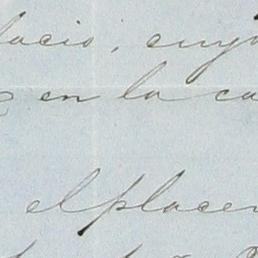 lacio, cuya
en la ca
el placer